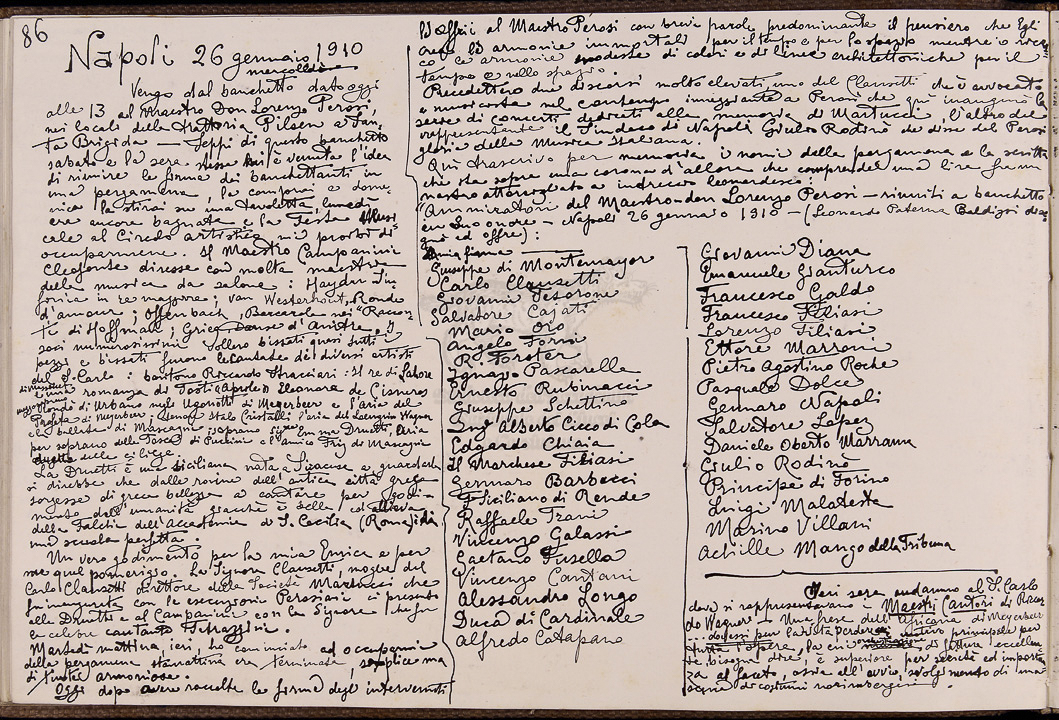 86
Napoli 26 gennaio 1910
mercoledì
Vengo dal banchetto dato oggi
alle 13 al Maestro Don Lorenzo Perosi,
nei locali della trattoria Pilsen a San
ta Brigida — Seppi di questo banchetto
sabato e la sera stessa mi è venuta l'idea
di riunire le firme dei banchettanti in
una pergamena, la comprai e dome
nica la stirai su una tavoletta, lunedì
era ancora bagnata e la festa Musi
cale al Circolo artistico mi proibì di
occuparmene. Il Maestro Campanini
Cleofonte diresse con molta maestria
della musica da salone: Haydn Sin
fonia in re maggiore; van Westerhout, Ronde
d'amour; Offenbach, Barcarola nei "Raccon
ti di Hoffman; Grieg Danse d'Anitra. I
soci numerosissimi vollero bissati quasi tutti i
pezzi e bissati furono le cantate dei diversi artisti
del S. Carlo: baritono Riccardo Stracciari: Il re di Lahore
romanza di Tosti (Napoli) Eleonora de Cisneros
Rondò di Urbano negli Ugonotti di Meyerbeer e l'aria del
Profeta di Meyerbeer. tenore Italo Cristalli: l'aria del Loengrin Wagner
e la ballata di Mascagni. soprano Sig.na Emma Druetti, l'aria
per soprano della Tosca di Puccini e l'amico Fritz de Mascagni
duetto delle ciliege.
La Druetti è una siciliana nata a Siracusa e guardarla
si direbbe che dalle rovine dell'antica città greca
sorgesse di greca bellezza a cantare per godi-
mento dell'umanità giacchè è bella, ed allieva
della Falchi dell'Accademia di S. Cecilia (Roma) di
una scuola perfetta.
Un vero godimento per la mia Enrica e per
me quel pomeriggio. La Signora Clausetti, moglie del
Carlo Clausetti direttore della Società Martucci che
s'inaugurata con le escuzioni Perosiane ci presentò
alla Druetti e al Campanini con la Signora (che fu
la celebre cantante Tetrazzini.
Martedì mattina, ieri, ho cominciato ad occuparmi
della pergamena stamattina era terminata, semplice ma
di tinte armoniose.
Oggi dopo avere raccolte le firme degli intervenuti
la offrii al Maestro Perosi con breve parole predominante il pensiero che Egli
crea le armonie immortali per il tempo e per lo spazio mentre io cerc
co le armonie modeste di colori e di linee architettoniche per il
tempo e nello spazio.
Precedettero due discorsi molto elevati, uno del Clausetti che è avvocato
e musicista nel contempo inneggiante a Perosi che qui inaugurò la
serie di concerti dedicati alla memoria di Martucci, l'altro del
rappresentante il Sindaco di Napoli Giulio Rodinò che disse del Perosi
gloria della Musica Italiana.
Qui trascrivo per memoria i nomi della pergamena e la scritta
che sta sopra una corona d'allora che comprende una lira
nastro attorcigliato a indreccio leonardesco:
"Ammiratori del Maestro don Lorenzo Perosi — riuniti a banchetto
in Suo onore — Napoli 26 gennaio 1910 — (Leonardo Paterna Baldizzi dise
gnò ed offre):
mia firma
Giuseppe di Montemayor
Carlo Clausetti
Giovanni Tesorone
Salvatore Cajati
Mario Oro
Angelo Forni
R. Forster
Ignazio Pascarella
Ernesto Rubinacci
Giuseppe Schettino
Ing. Alberto Cicco di Cola
Edgardo Chiaia
Il Marchese Filiasi
Gennaro Barbocci
F. Siciliano di Rende
Raffaele Trani
Vincenzo Galassi
Gaetano Fusella
Vincenzo Cantani
Alessandro Longo
Duca di Cardinale
Alfredo Catapano
Giovanni Diana
Emanuele Gianturco
Francesco Galdo
Francesco Filiasi
Lorenzo Filiasi
Ettore Marroni
Pietro Agostino Roche
Pasquale Dolce
Gennaro Napoli
Salvatore Lopez
Daniele Oberto Marrama
Giulio Rodinò
Principe di Torino
Luigi Malatesta
Marino Villani
Achille Mango della Tribuna
Ieri sera andammo al S. Carlo
dove si rappresentavano i Maestri Cantori di Riccar
do Wagner — Una frase dell'Africana di Meyerbeer
motivo principale per
tutta l'opera, la cui di fattura eccellen
te bisogna dire, è superiore per serietà ed importan
za al facto, ossia all'ovvio svolgimento di una
scena di costumi norimberghesi.